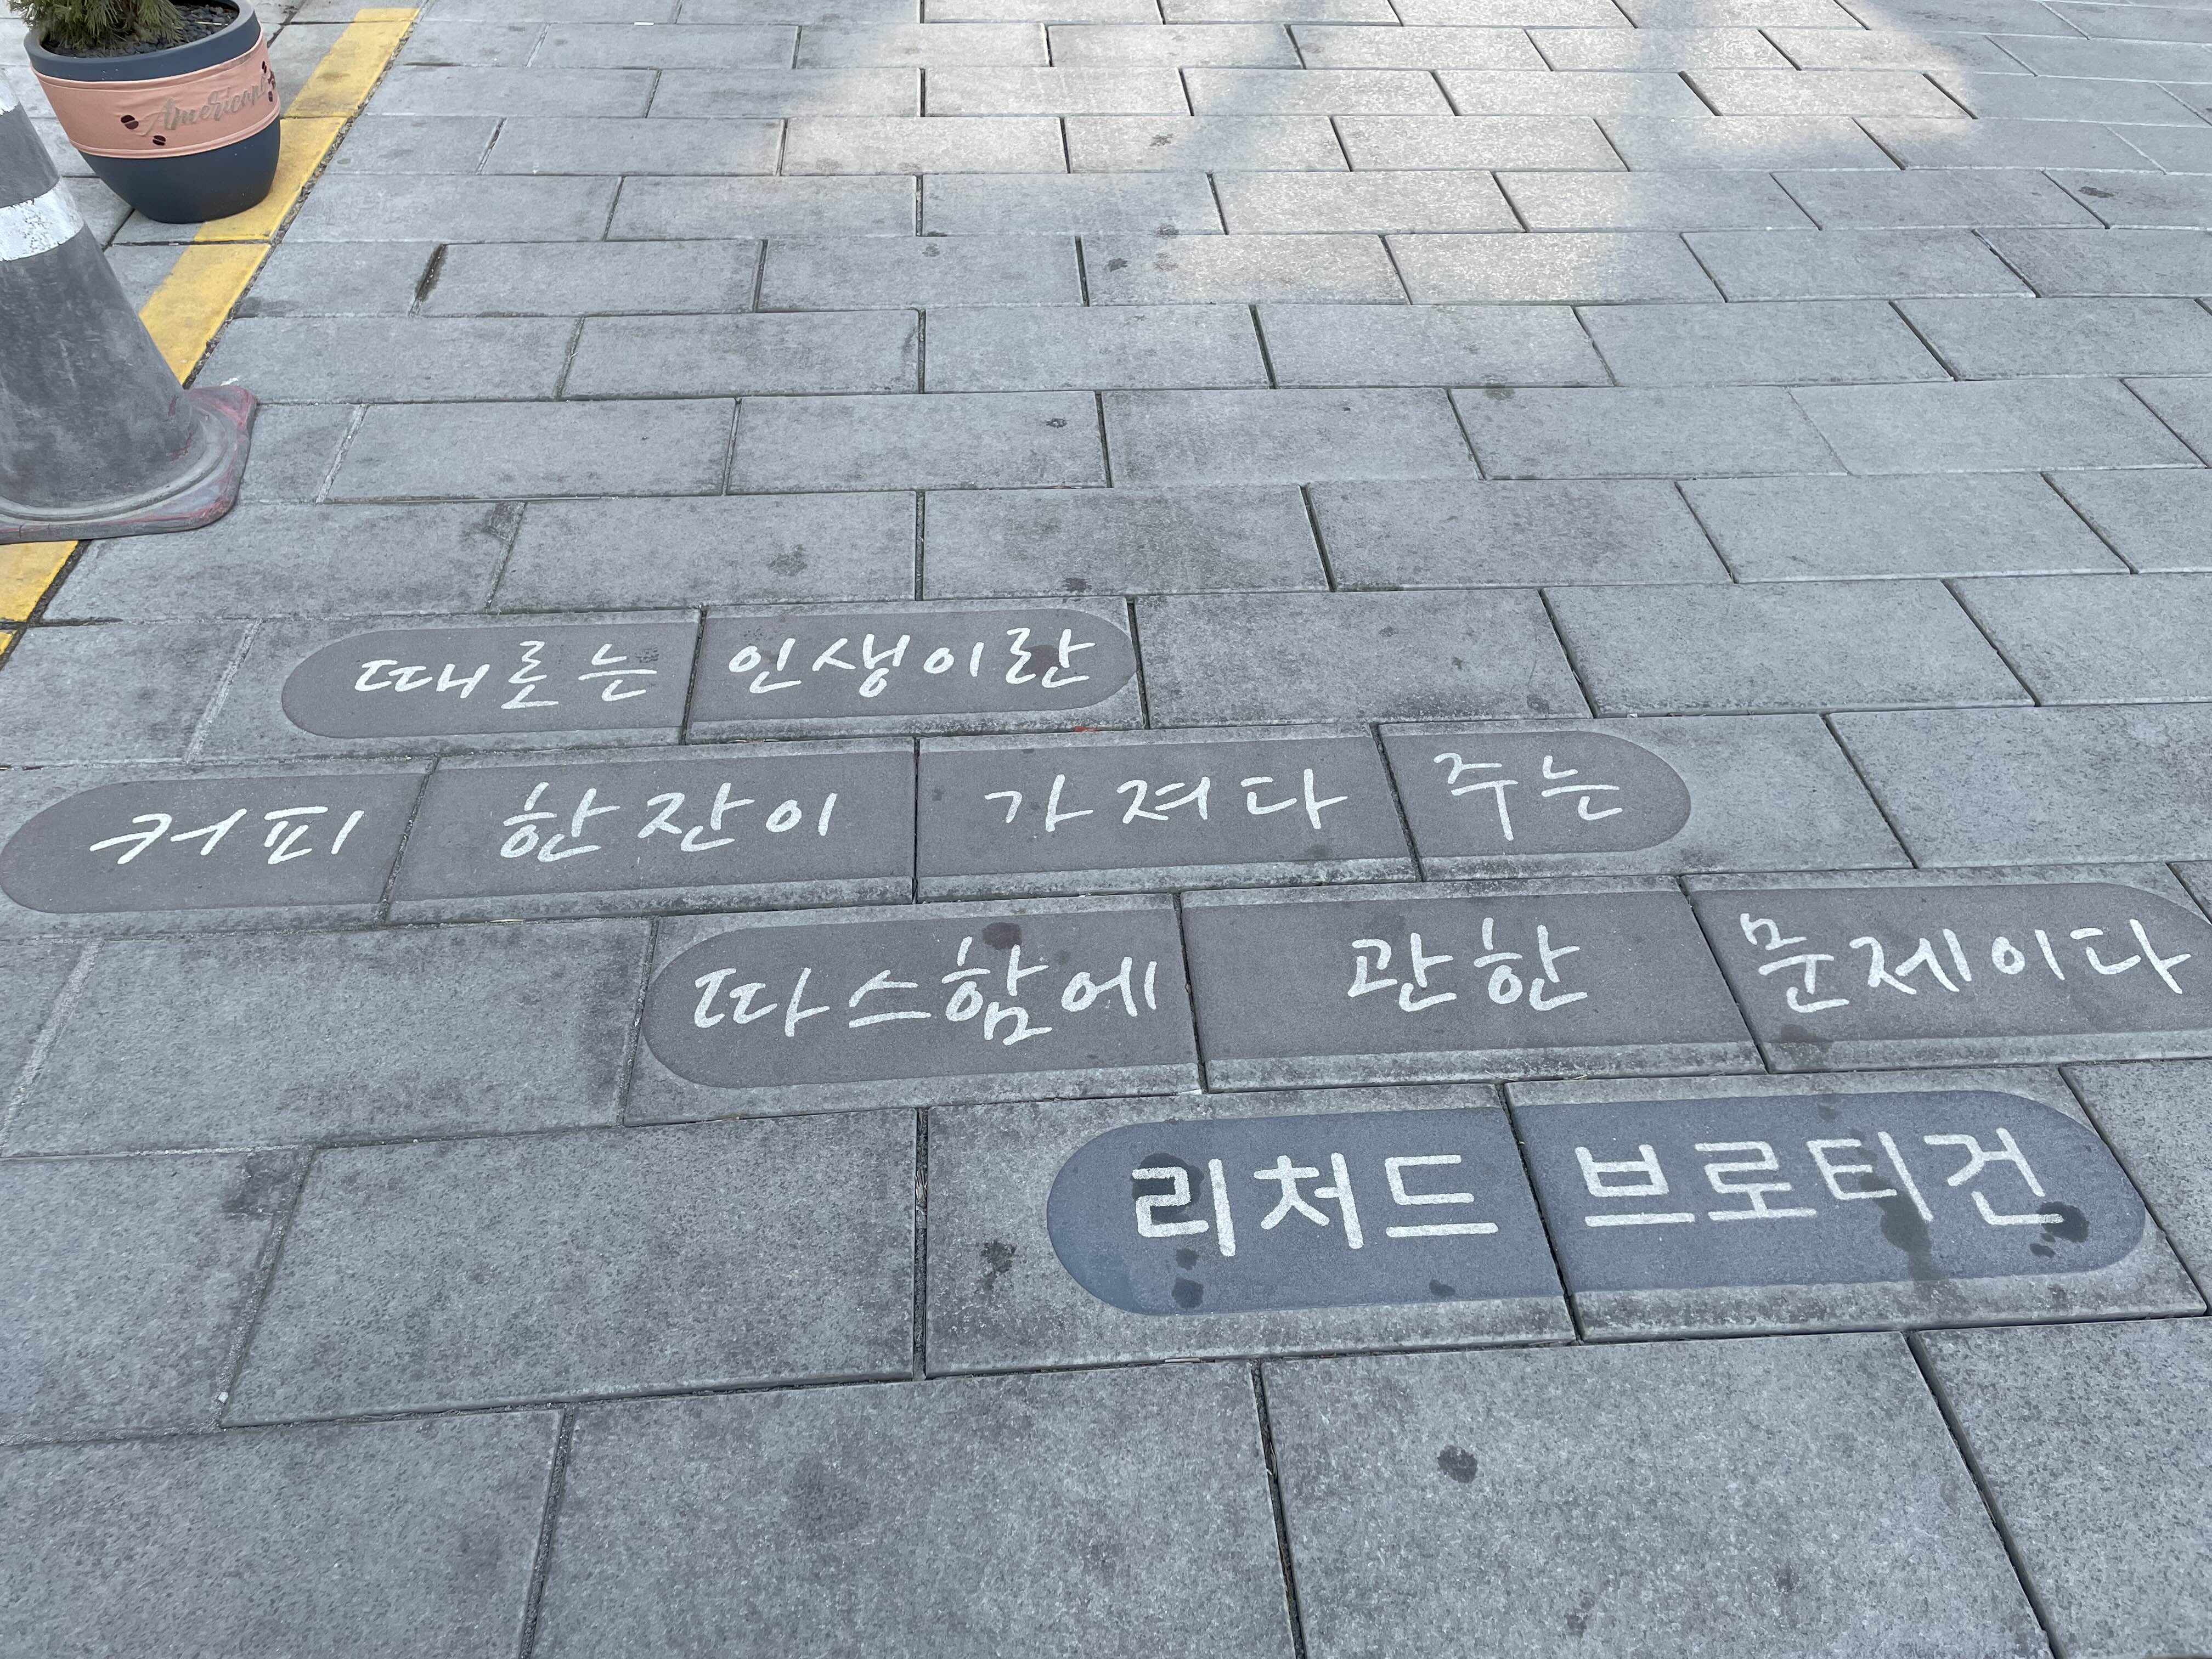 Americano
때로는 인생이란
커피 한잔이 가져다 주는
따스함에 관한 문제이다
리처드 브로티건